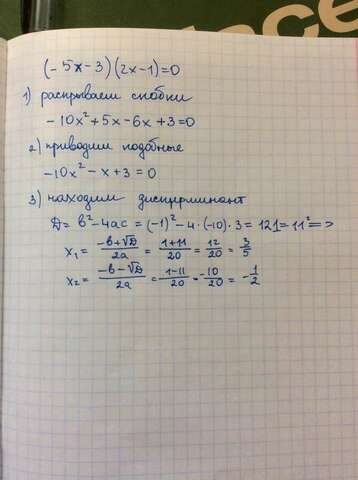 ce
(-5x-3)(2x-1)=0
1) раскрываем скобки
-10x²+5x-6x+3=0
2) приводим подобные
-10x²-x+3=0
3) находим дискриминант
D=b²-4ac=(-1)²-4·(-10)·3=121=11²=>
x₁=(-b+√D)/2a=(1+11)/20=12/20=3/5
x₂=(-b-√D)/2a=(1-11)/20=-10/20=-1/2